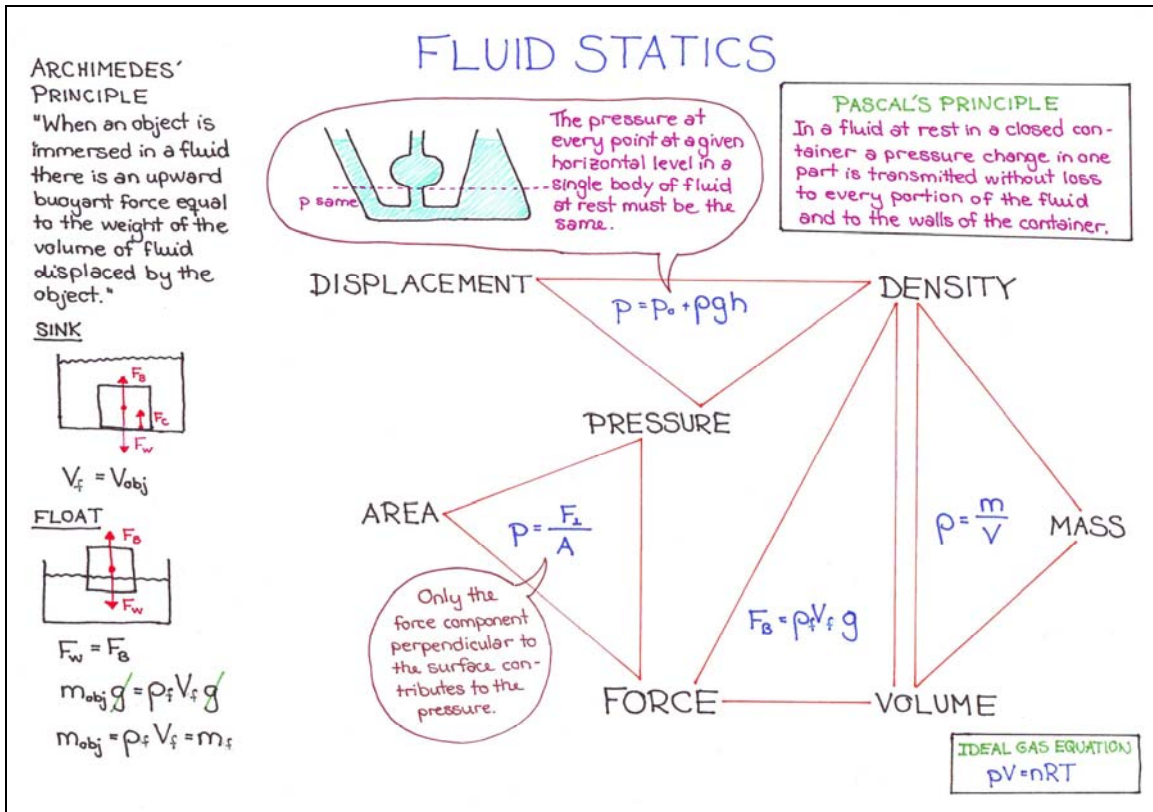 FLUID STATICS
ARCHIMEDES'
PRINCIPLE
"When an object is
immersed in a fluid
there is an upward
buoyant force equal
to the weight of the
volume of fluid
displaced by the
object."
SINK
F_B
F_C
F_W
V_f = V_obj
FLOAT
F_B
F_W
F_W = F_B
m_obj g = ρ_f V_f g
m_obj = ρ_f V_f = m_f
p same
The pressure at
every point at a given
horizontal level in a
single body of fluid
at rest must be the
same.
PASCAL'S PRINCIPLE
In a fluid at rest in a closed con-
tainer a pressure change in one
part is transmitted without loss
to every portion of the fluid
and to the walls of the container.
DISPLACEMENT
DENSITY
p = p₀ + ρgh
PRESSURE
AREA
p = F⊥/A
MASS
ρ = m/V
Only the
force component
perpendicular to
the surface con-
tributes to the
pressure.
F_B = ρ_f V_f g
FORCE
VOLUME
IDEAL GAS EQUATION
pV=nRT